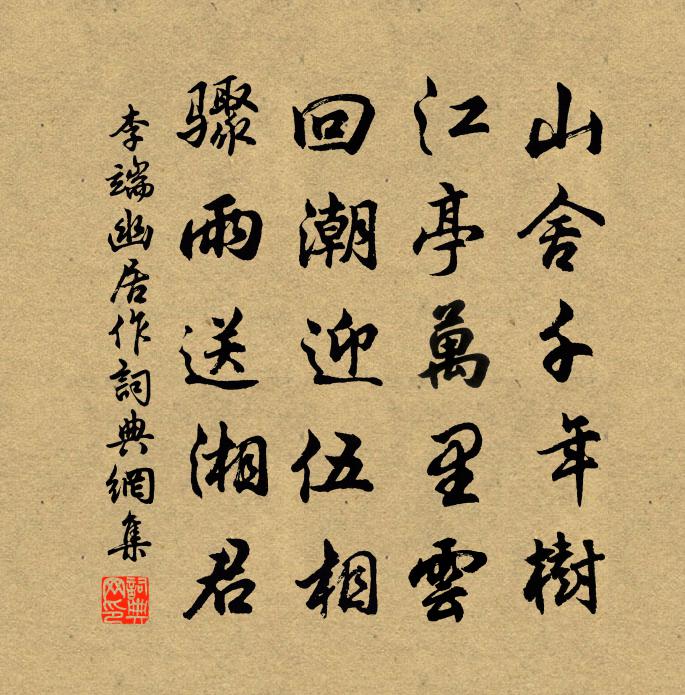 山舍千年樹
江亭萬里雲
回潮迎伍相
驟雨送湘君
李端幽居作詞典網集
詞典網印